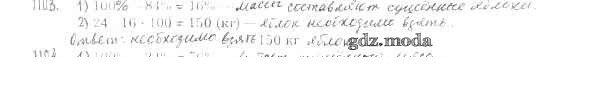 1103. 1) 100% - 84% = 16% - массы составляют сушённые яблоки.
2) 24 : 16 · 100 = 150 (кг) — яблок необходимо взять.
Ответ: необходимо взять 150 кг яблок
gdz.moda